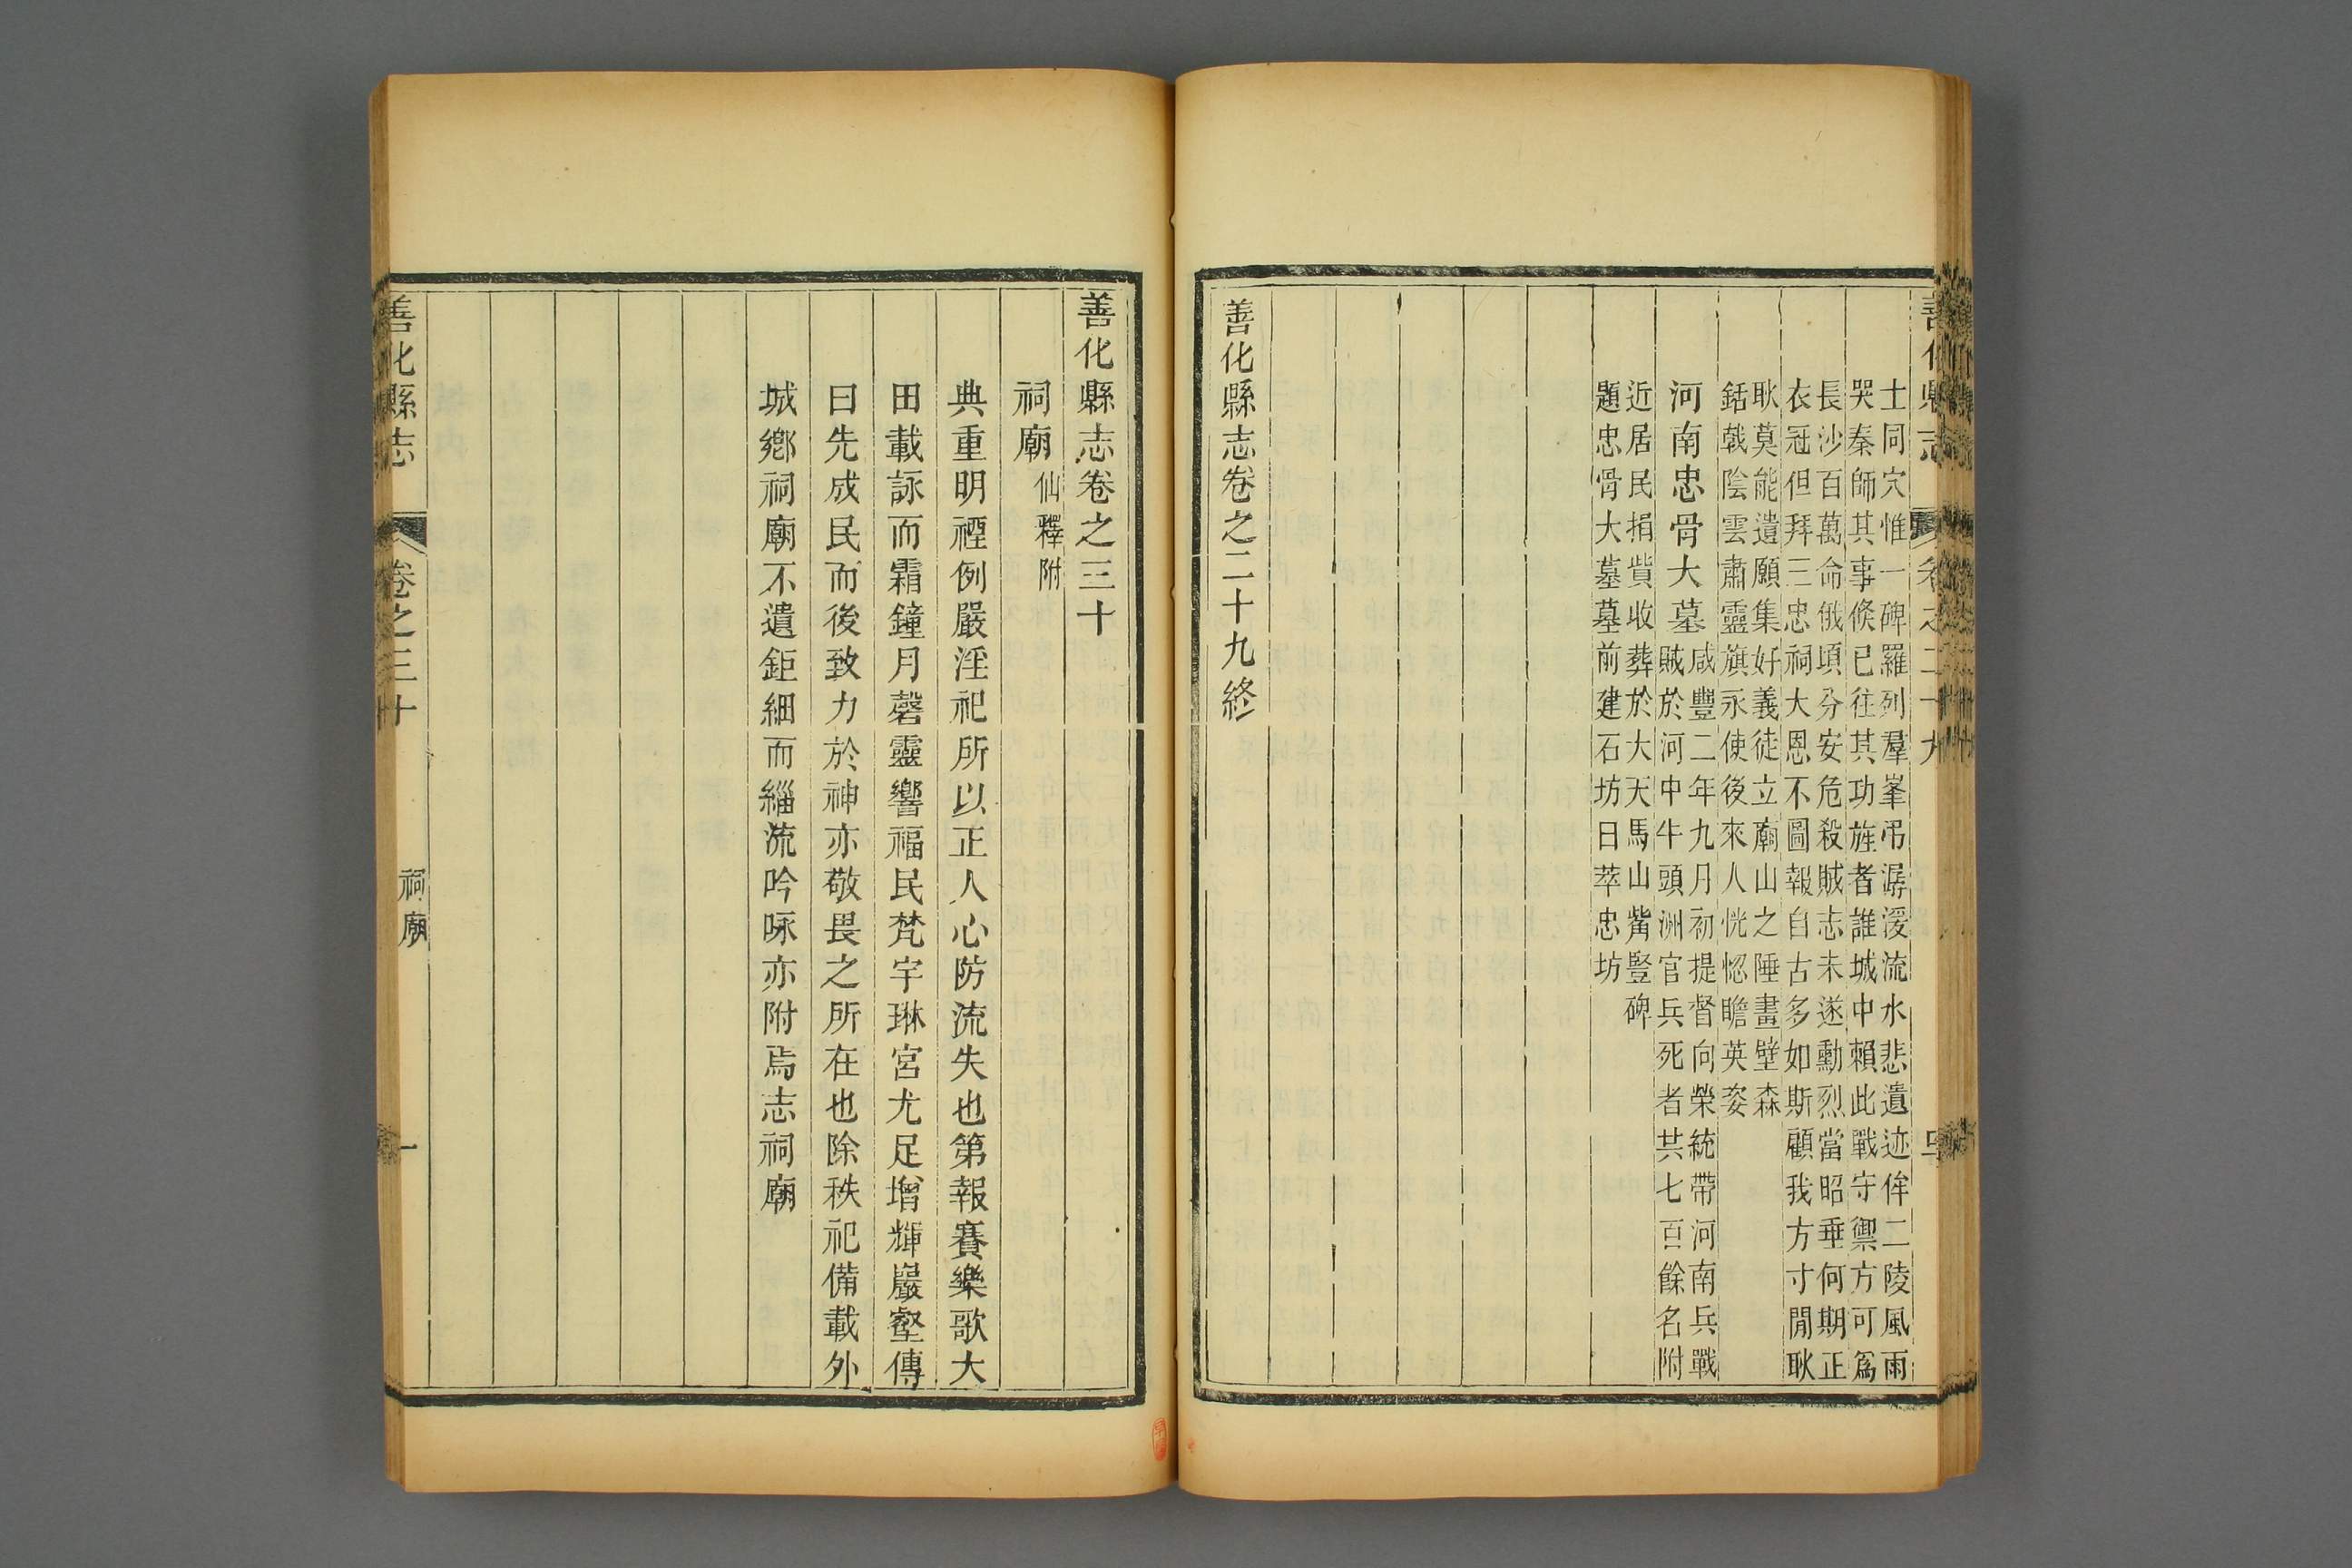 士同穴惟一碑羅列羣峯弔潺湲流水悲遺迹侔二陵風雨
哭秦師其事倏已往其功旌者誰城中賴此戰守禦方可爲
長沙百萬命俄頃分安危殺賊志未遂勳烈當昭垂何期正
衣冠但拜三忠祠大恩不圖報自古多如斯顧我方寸閒耿
耿莫能遺願集好義徒立廟山之陲畫壁森
銛戟陰雲肅靈旗永使後來人恍惚瞻英姿
河南忠骨大墓
咸豐二年九月初提督向榮統帶河南兵戰
賊於河中牛頭洲官兵死者共七百餘名附
近居民捐貲收葬於大天馬山觜豎碑
題忠骨大墓墓前建石坊曰萃忠坊
善化縣志卷之二十九終
善化縣志卷之三十
祠廟仙釋附
典重明禋例嚴淫祀所以正人心防流失也第報賽樂歌大
田載詠而霜鐘月磬靈響福民梵宇琳宮尤足增輝巖壑傳
曰先成民而後致力於神亦敬畏之所在也除秩祀備載外
城鄉祠廟不遺鉅細而緇流吟咏亦附焉志祠廟
善化縣志
卷之三十
祠廟
一